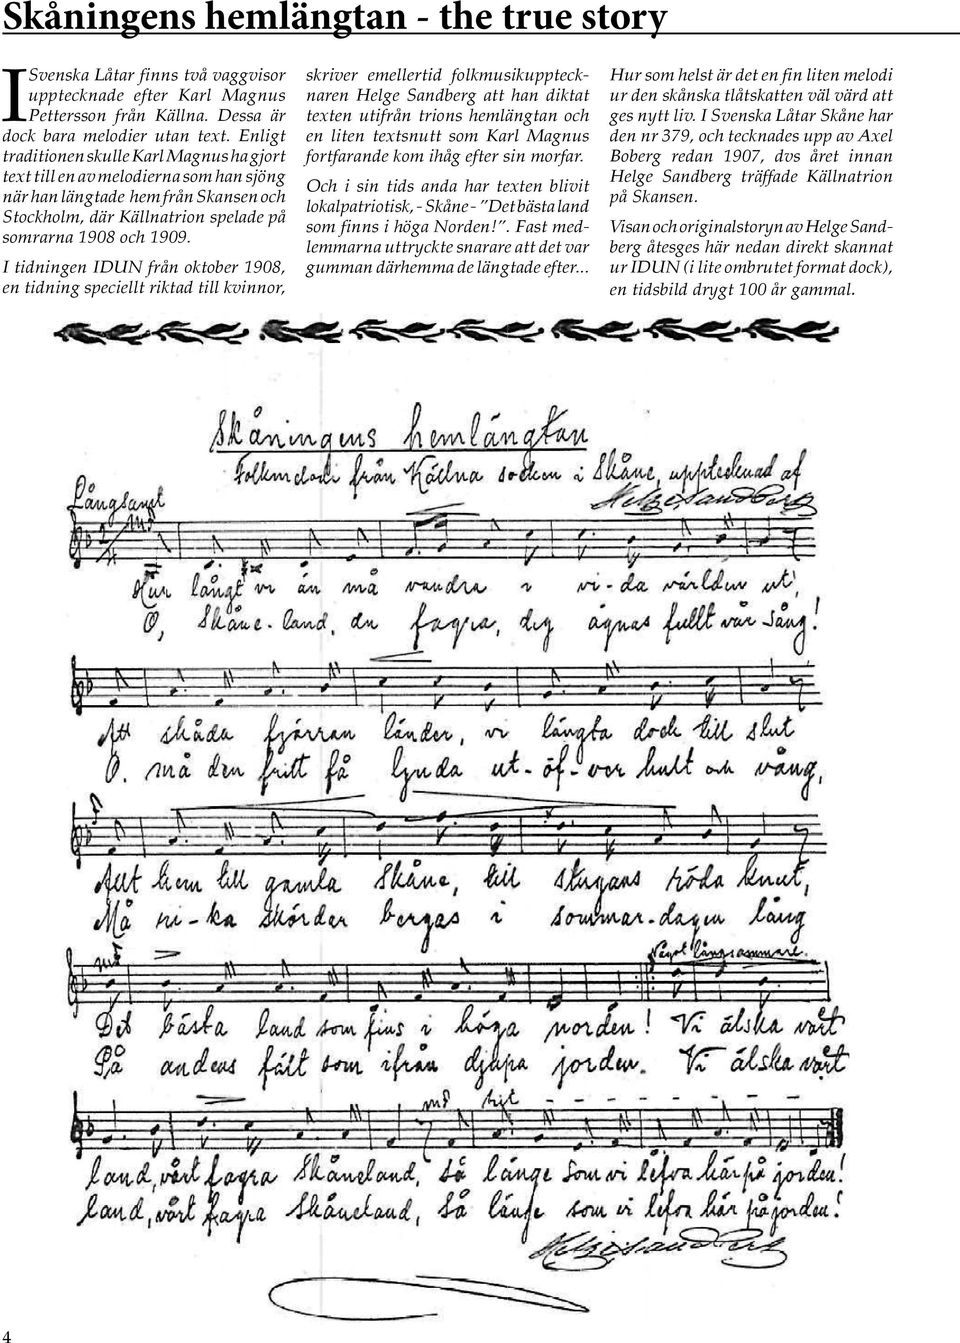 Skåningens hemlängtan - the true story
I Svenska Låtar finns två vaggvisor
upptecknade efter Karl Magnus
Pettersson från Källna. Dessa är
dock bara melodier utan text. Enligt
traditionen skulle Karl Magnus ha gjort
text till en av melodierna som han sjöng
när han längtade hem från Skansen och
Stockholm, där Källnatrion spelade på
somrarna 1908 och 1909.
I tidningen IDUN från oktober 1908,
en tidning speciellt riktad till kvinnor,
skriver emellertid folkmusikuppteck-
naren Helge Sandberg att han diktat
texten utifrån trions hemlängtan och
en liten textsnutt som Karl Magnus
fortfarande kom ihåg efter sin morfar.
Och i sin tids anda har texten blivit
lokalpatriotisk, - Skåne - "Det bästa land
som finns i höga Norden!". Fast med-
lemmarna uttryckte snarare att det var
gumman därhemma de längtade efter...
Hur som helst är det en fin liten melodi
ur den skånska tlåtskatten väl värd att
ges nytt liv. I Svenska Låtar Skåne har
den nr 379, och tecknades upp av Axel
Boberg redan 1907, dvs året innan
Helge Sandberg träffade Källnatrion
på Skansen.
Visan och originalstoryn av Helge Sand-
berg åtesges här nedan direkt skannat
ur IDUN (i lite ombrutet format dock),
en tidsbild drygt 100 år gammal.
Skåningens hemlängtan
Folkmelodi från Källna socken i Skåne, upptecknad af
Helge Sandberg
Långsamt
mf
Hur långt vi än må vandra i vi-da världen ut,
O, Skåne-land, du fagra, dig ägnas fullt vår sång!
Att skåda fjärran länder, vi längta dock till slut
O, må den fritt få ljuda ut-öf-ver hult och vång,
Allt hem till gamla Skåne, till stugans röda knut,
Må ri-ka skördar bergas i sommar-dagen lång
Något långsammare.
Det bästa land som fins i höga norden! Vi älska vårt
På andens fält som ifrån djupa jorden. Vi älska vårt
land, vårt fagra Skåneland, så länge som vi lefva här på jorden!
land, vårt fagra Skåneland, så länge som vi lefva här på jorden!
Helge Sandberg
4